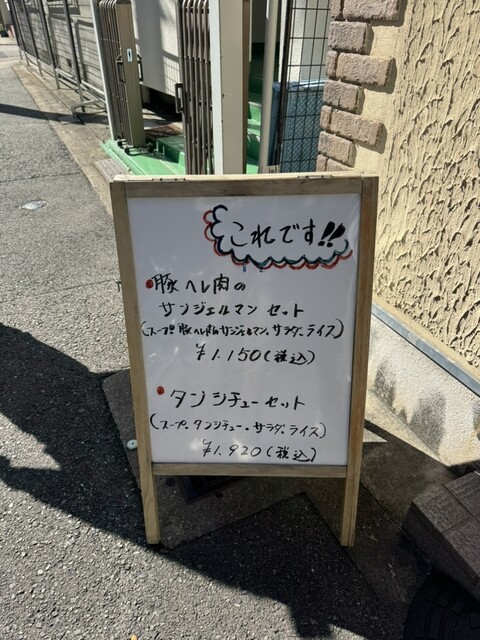 これです!!
豚ヘレ肉の
サンジェルマンセット
(スープ 豚ヘレ肉のサンジェルマン、サラダ、ライス)
¥1.150(税込)
タンシチューセット
(スープ、タンシチュー、サラダ、ライス)
¥1.920(税込)